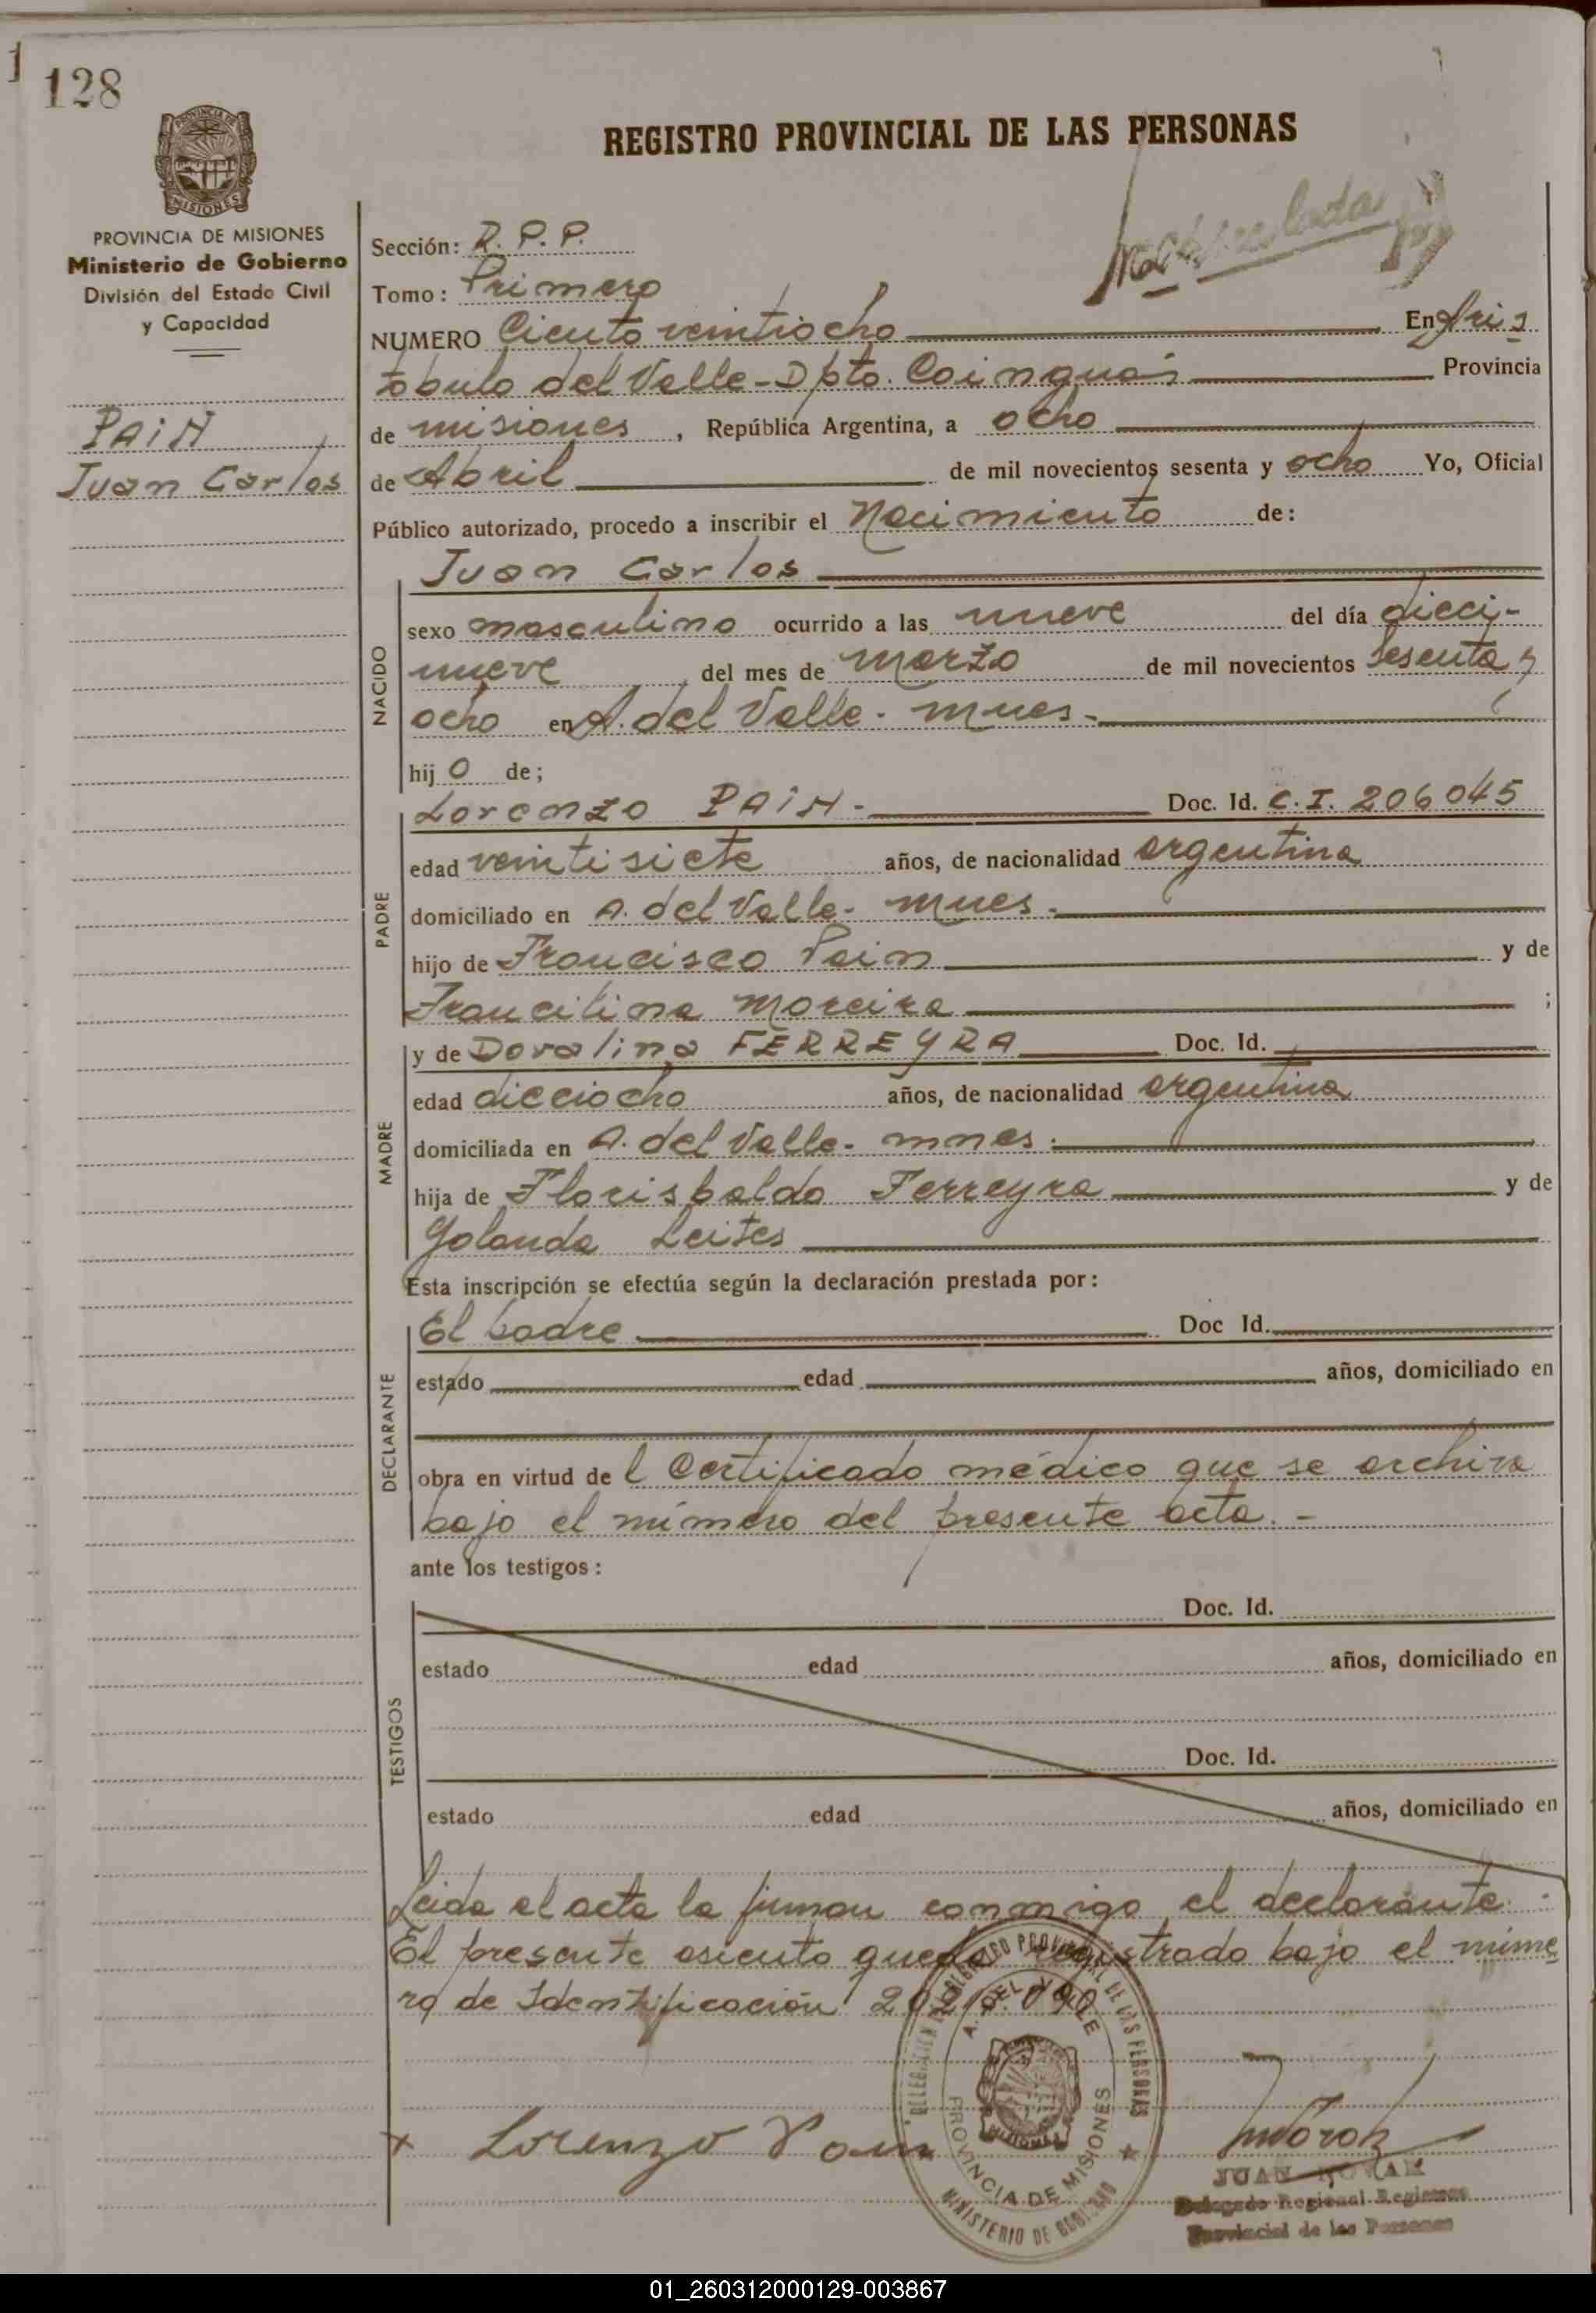 128
REGISTRO PROVINCIAL DE LAS PERSONAS
PROVINCIA DE MISIONES
Ministerio de Gobierno
División del Estado Civil
y Capacidad
PAIN
Juan Carlos
Sección: R. P. P.
Tomo: Primero
NUMERO Ciento veintiocho En Aris
tobulo del Valle - Dpto. Cainguás Provincia
de misiones, República Argentina, a ocho
de Abril de mil novecientos sesenta y ocho Yo, Oficial
Público autorizado, procedo a inscribir el Nacimiento de:
NACIDO
Juan Carlos
sexo masculino ocurrido a las nueve del día dieci-
nueve del mes de marzo de mil novecientos sesenta y
ocho en A. del Valle - mnes.-
hij o de;
PADRE
Lorenzo PAIN.- Doc. Id. C.I. 206045
edad veintisiete años, de nacionalidad argentina
domiciliado en A. del Valle - mnes.-
hijo de Francisco Pain y de
Francilina Moreira ;
MADRE
y de Dovalina FERREYRA Doc. Id.
edad dieciocho años, de nacionalidad argentina
domiciliada en A. del Valle - mnes.-
hija de Florisbaldo Ferreyra y de
Yolanda Leites
Esta inscripción se efectúa según la declaración prestada por:
DECLARANTE
El padre Doc Id.
estado edad años, domiciliado en
obra en virtud de l Certificado médico que se archiva
bajo el número del presente acta.-
ante los testigos:
TESTIGOS
Doc. Id.
estado edad años, domiciliado en
Doc. Id.
estado edad años, domiciliado en
Leida el acta la firman conmigo el declarante.
El presente asiento queda registrado bajo el núme
ro de Identificación
A. DEL VALLE
PROVINCIA DE MISIONES
MINISTERIO DE GOBIERNO
Lorenzo Pain
JUAN NOVAK
Delegado Regional Registro
Provincial de las Personas
01_260312000129-003867